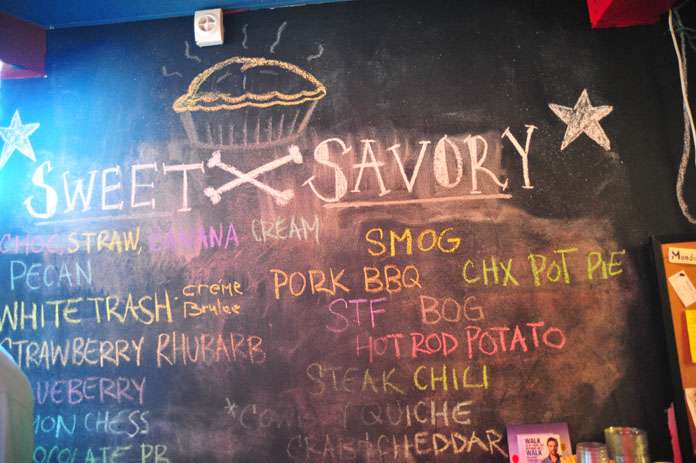 SWEET SAVORY
CHOC, STRAW, BANANA CREAM
PECAN
WHITE TRASH créme Brulee
STRAWBERRY RHUBARB
LUEBERRY
MON CHESS
OCOLATE PB
SMOG
PORK BBQ CHX POT PIE
STF BOG
HOT ROD POTATO
STEAK CHILI
QUICHE
CHEDDAR
Monda
WALK
WALK